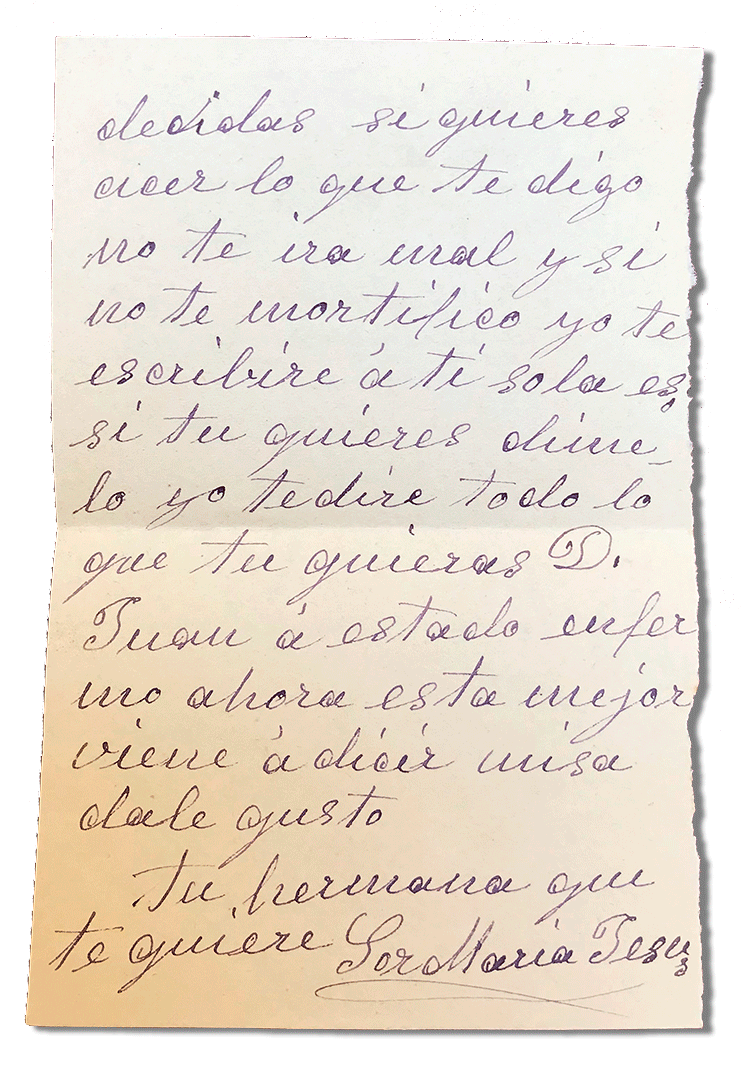 dedidas si quieres
acer lo que te digo
no te ira mal y si
no te mortifico yo te
escribire á ti sola es,
si tu quieres dime_
lo yo tedire todo lo
que tu quieras D.
Juan á estado enfer
mo ahora esta mejor
viene á dicir misa
dale gusto
tu hermana que
te quiere Sor Maria Jesus